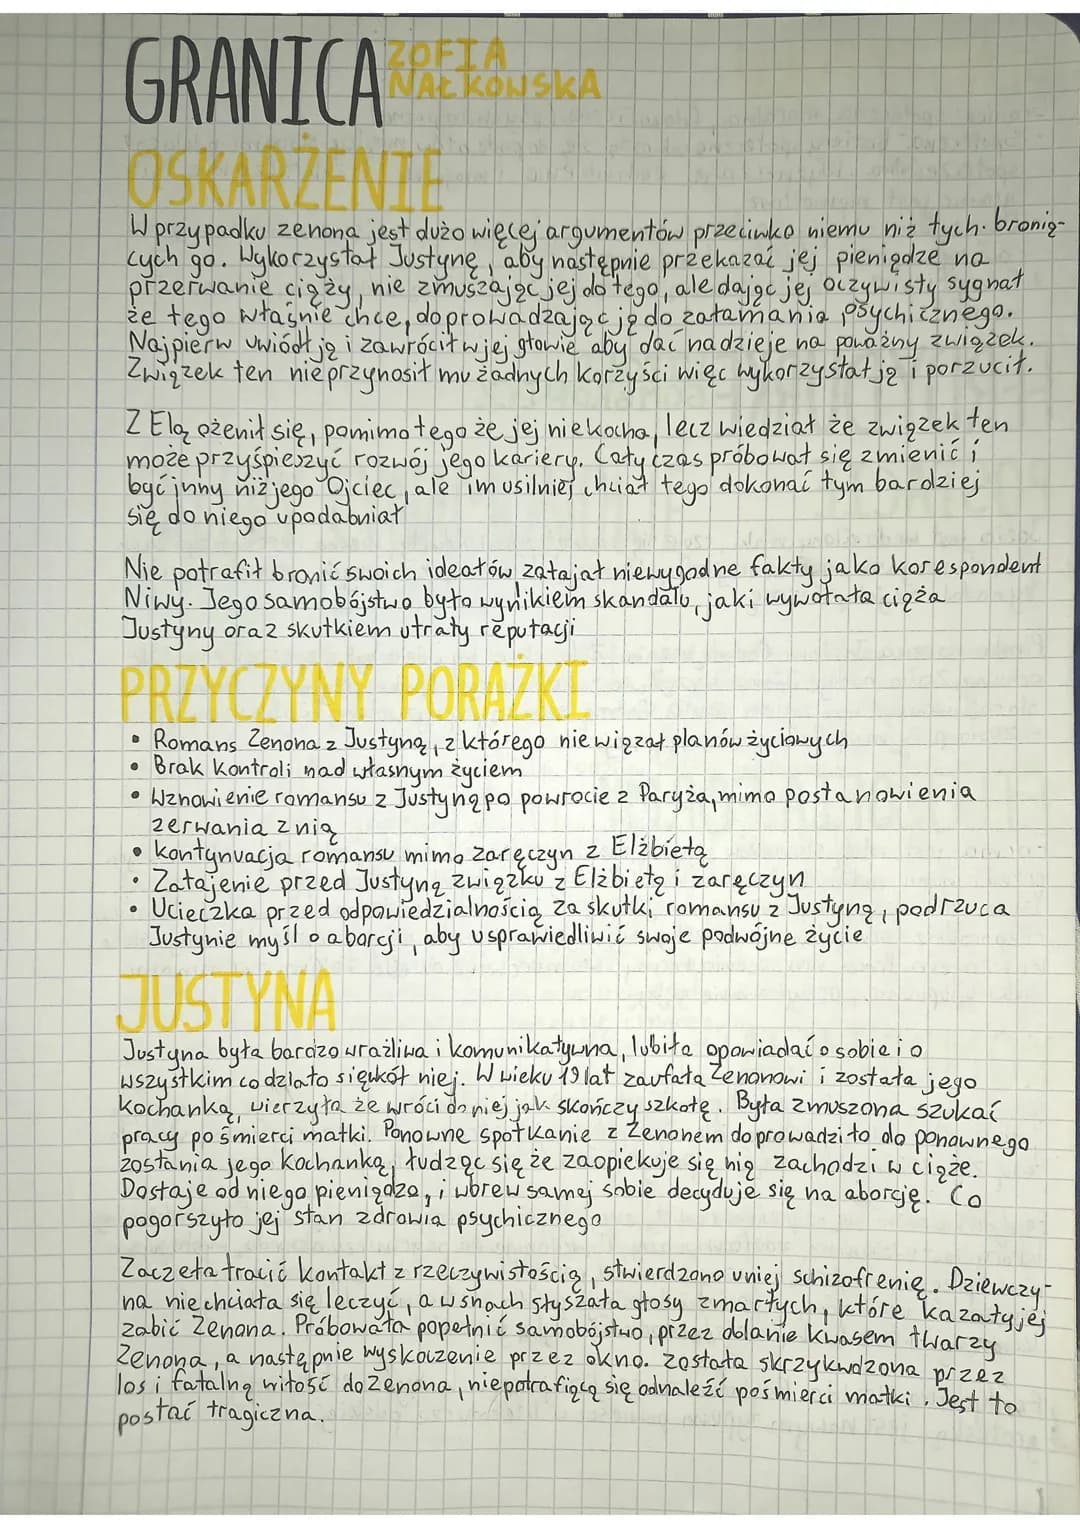 GRANICA ZOFIA NAŁKOWSKA
OSKARŻENIE
W przypadku zenona jest dużo więcej argumentów przeciwko niemu niż tych bronią-
cych go. Wykorzystał Justynę, aby następnie przekazać jej pieniądze na
przerwanie ciąży, nie zmuszając jej do tego, ale dając jej oczywisty sygnał
że tego właśnie chce, doprowadzając ją do załamania psychicznego.
Najpierw uwiódł ją i zawrócił w jej głowie aby dać nadzieje na poważny związek.
Związek ten nie przynosił mu żadnych korzyści więc wykorzystał ją i porzucił.
Z Elą ożenił się, pomimo tego że jej nie kocha, lecz wiedział że związek ten
może przyśpieszyć rozwój jego kariery. Cały czas próbował się zmienić i
być inny niż jego Ojciec, ale im usilniej chciał tego dokonać tym bardziej
się do niego upodabniał
Nie potrafił bronić swoich ideałów, zatajał niewygodne fakty jako korespondent
Niwy. Jego samobójstwo było wynikiem skandalu, jaki wywołała ciąża
Justyny oraz skutkiem utraty reputacji
PRZYCZYNY PORAŻKI
• Romans Zenona z Justyną, z którego nie wiązał planów życiowych
• Brak kontroli nad własnym życiem
• Wznowienie romansu z Justyną po powrocie z Paryża, mimo postanowienia
zerwania z nią
• kontynuacja romansu mimo zaręczyn z Elżbietą
• Zatajenie przed Justyną związku z Elżbietą i zaręczyn
• Ucieczka przed odpowiedzialnością za skutki romansu z Justyną, podrzuca
Justynie myśl o aborcji, aby usprawiedliwić swoje podwójne życie
JUSTYNA
Justyna była bardzo wrażliwa i komunikatywna, lubiła opowiadać o sobie i o
wszystkim co działo się wkół niej. W wieku 19 lat zaufała Zenonowi i została jego
kochanką, wierzyła że wróci do niej jak skończy szkołę. Była zmuszona szukać
pracy po śmierci matki. Ponowne spotkanie z Zenonem doprowadziło do ponownego
zostania jego kochanką, łudząc się że zaopiekuje się nią zachodzi w ciąże.
Dostaje od niego pieniądze, i wbrew samej sobie decyduje się na aborcję. Co
pogorszyło jej stan zdrowia psychicznego
Zaczeła tracić kontakt z rzeczywistością, stwierdzono u niej schizofrenię. Dziewczy-
na nie chciała się leczyć, a w snach słyszała głosy zmarłych, które kazały jej
zabić Zenona. Próbowała popełnić samobójstwo, przez oblanie kwasem twarzy
Zenona, a następnie wyskoczenie przez okno. została skrzykwdzona przez
los i fatalną miłość do Zenona, niepotrafiącą się odnaleźć po śmierci matki. Jest to
postać tragiczna.